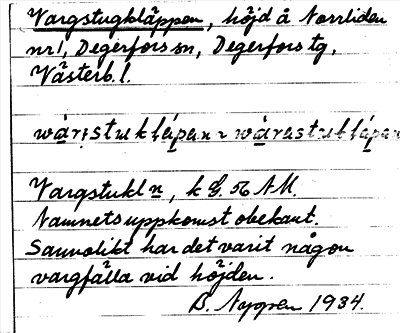 Vargstugkläppen, höjd å Norrliden
nr 1, Degerfors sn, Degerfors tg,
Västerb. l.
Vargstukln, k G. 56 AM.
Namnets uppkomst obekant.
Sannolikt har det varit någon
vargfälla vid höjden.
1934.